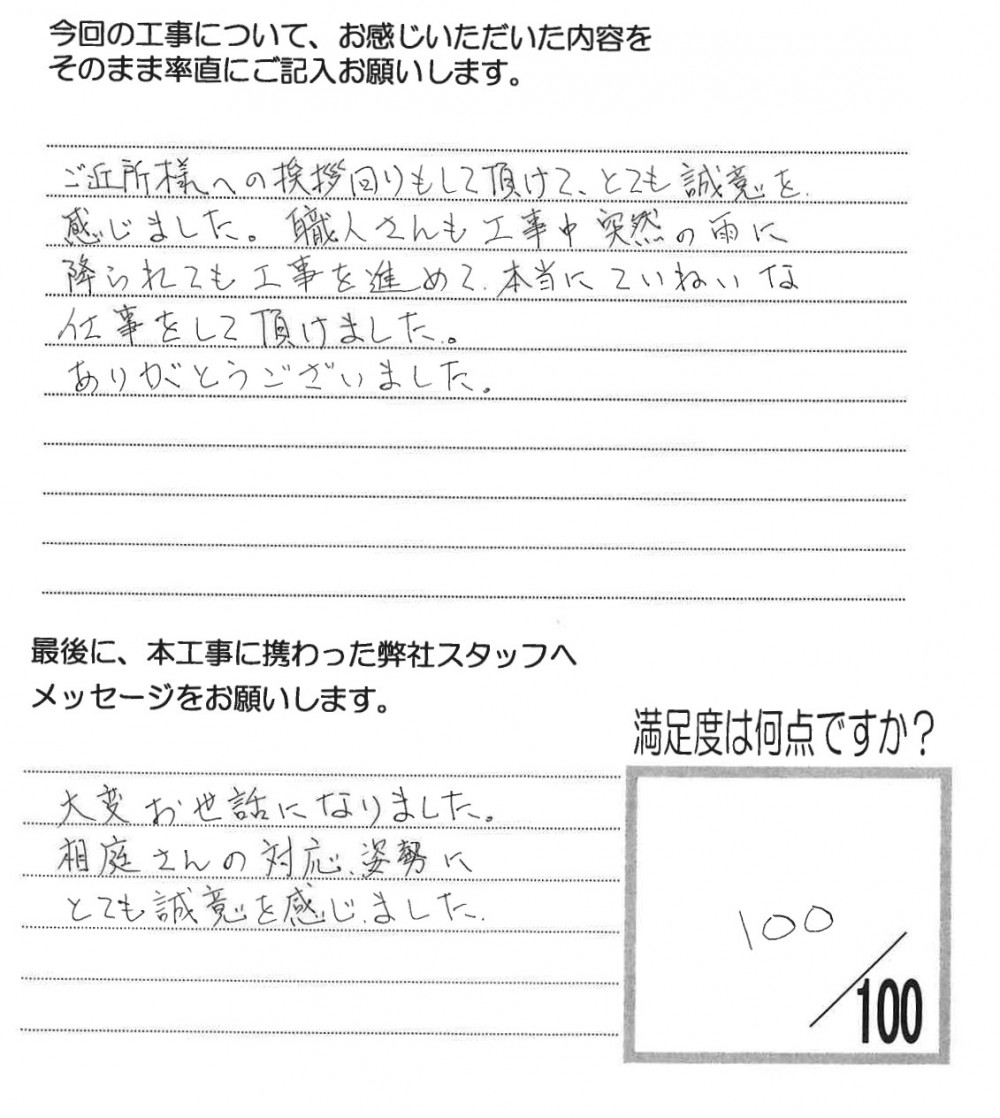 今回の工事について、お感じいただいた内容を
そのまま率直にご記入お願いします。
ご近所様への挨拶回りもして頂けて、とても誠意を
感じました。職人さんも工事中突然の雨に
降られても工事を進めて、本当にていねいな
仕事をして頂けました。
ありがとうございました。
最後に、本工事に携わった弊社スタッフへ
メッセージをお願いします。
満足度は何点ですか?
大変お世話になりました。
相庭さんの対応、姿勢に
とても誠意を感じました。
100
/100